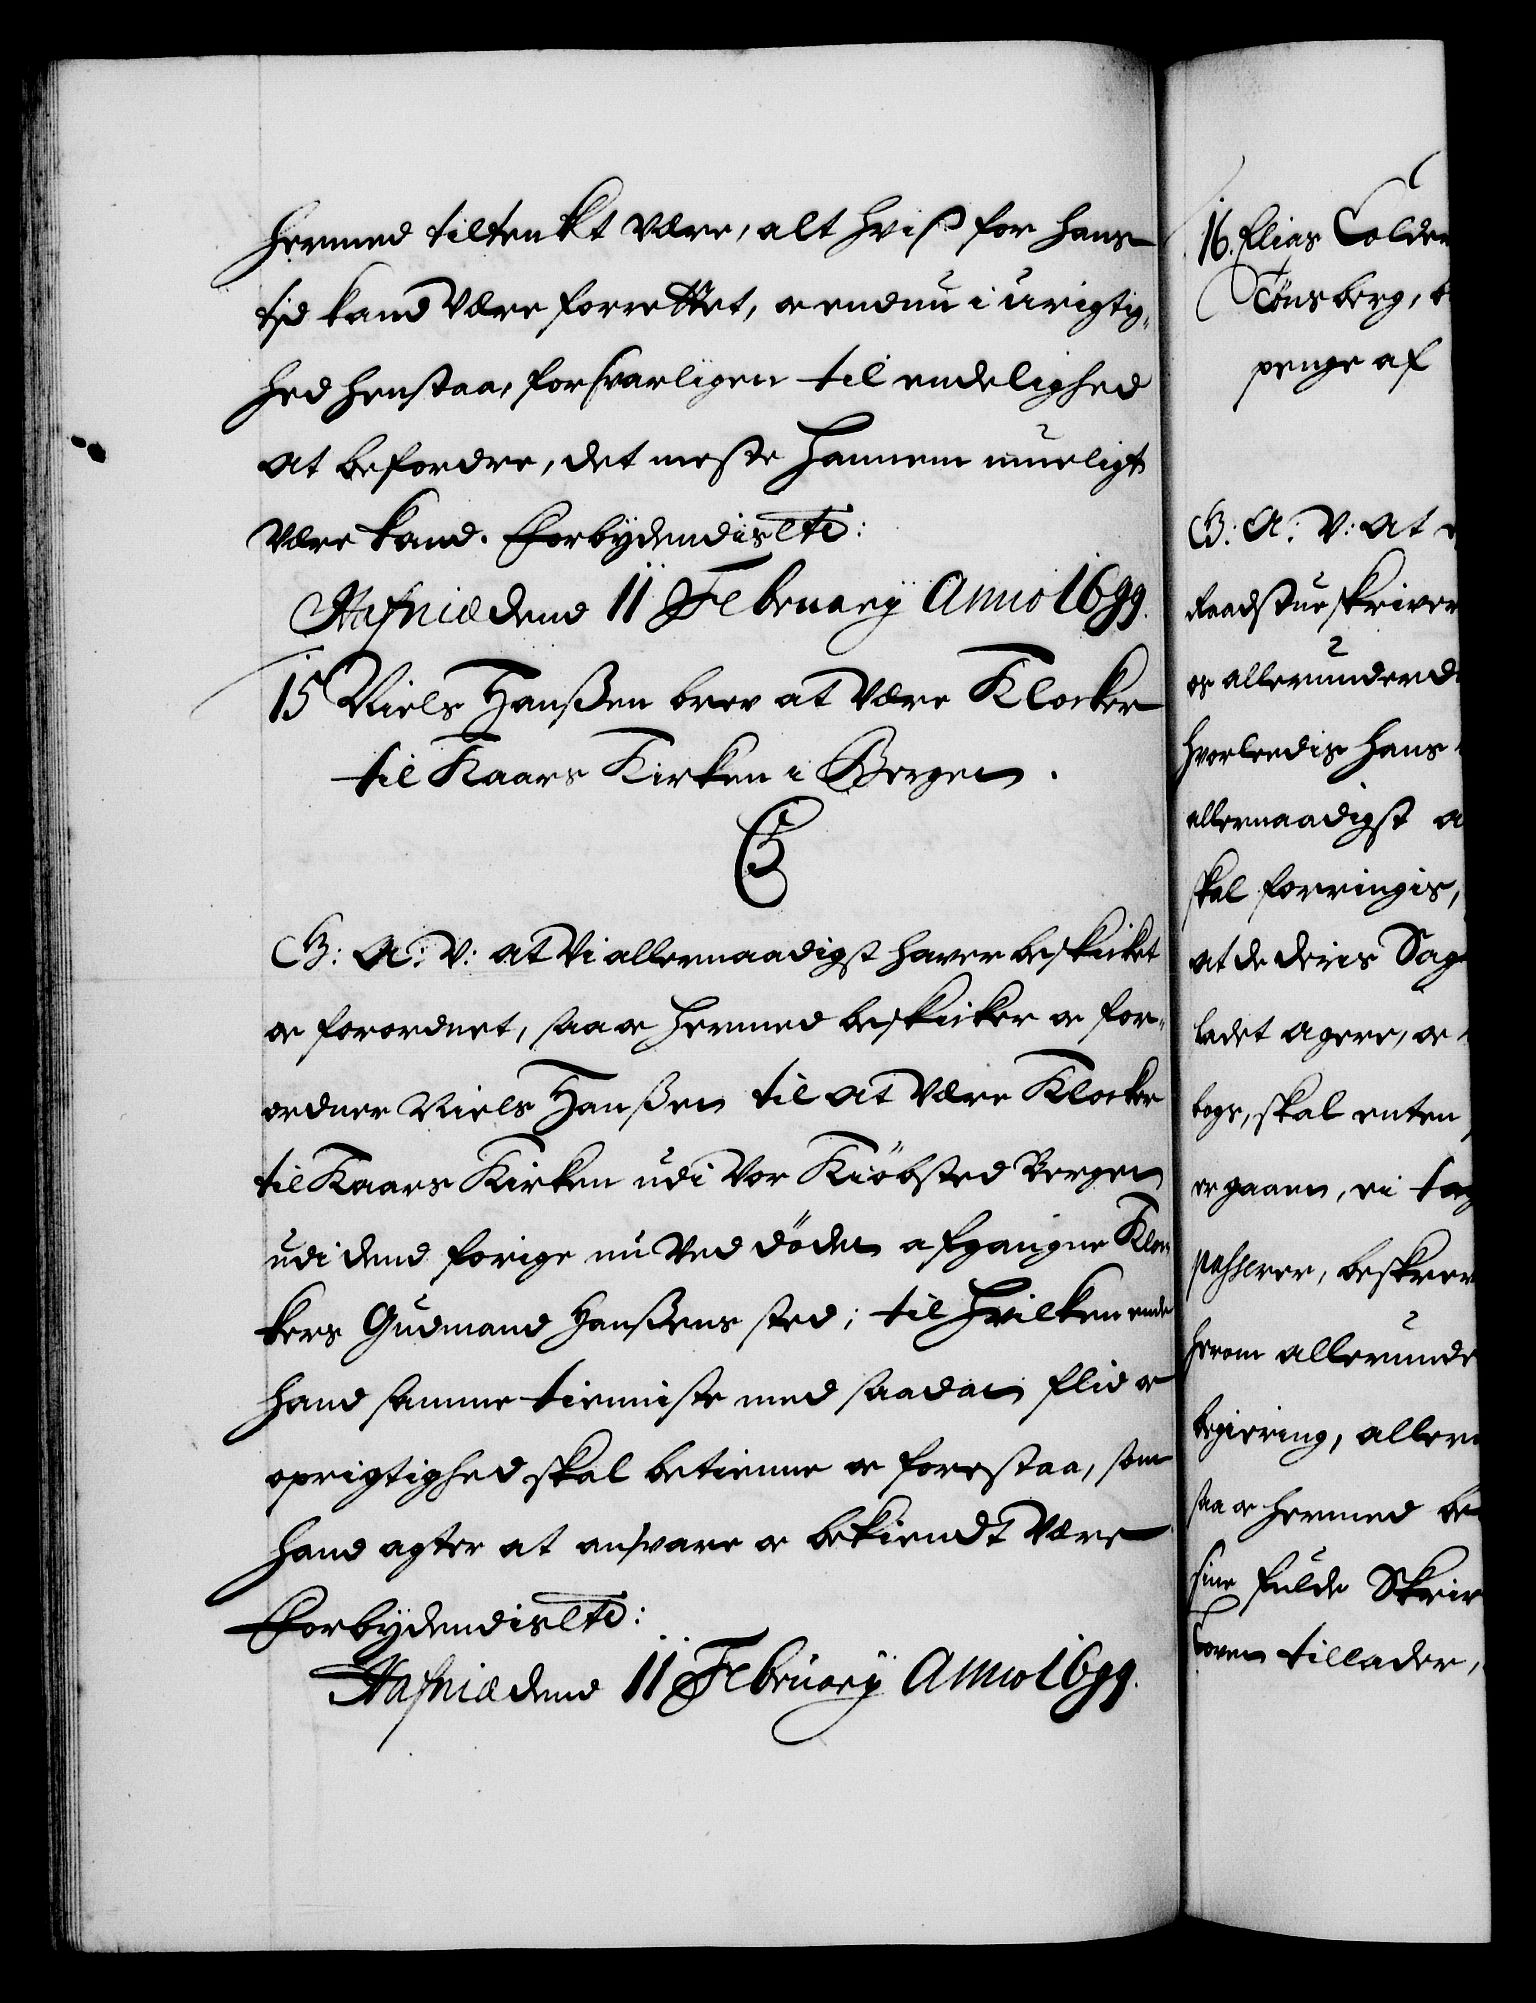 hermed tiltenkt være, alt hviß for hans
tid kand være forrettet, og endnu i urigtig-
hed henstaa, forsvarligen til endelighed
at befordre, det meste hannem mueligt
være kand. Forbydendis etc:
Hafniæ dend 11 February Anno 1699.
15 Niels Hanßen brev at være Klocker
til Kaars Kirken i Bergen.
C5
G: A: V: at Vi allernaadigst haver beskicket
og forordnet, saa og hermed beskicker og for-
ordner Niels Hanßen til at være Klocker
til Kaars Kirken udi vor Kiöbsted Bergen
udi dend forige nu ved döden afgangne Kloc-
kers Gudmand Hanßens sted; til hvilken ende
hand samme tienniste med saadan flid og
oprigtighed skal betienne og forestaa, som
hand agter at ansvare og bekiendt være
Forbydendis etc:
Hafniæ dend 11 February Anno 1699.
16. Elias Colde
Tönsberg,
penge af
G: A: V: at
Raadstueskriver
os allerunderd
hvorledis hans
allernaadigst a
skal forringis,
at de deris Sag
ladet agere, og
bogs, skal enten
ergaaen, ei
passerer, beskrev
herom allerunde
begiering, aller
saa og hermed be
sine fulde Skriv
Loven tillader,